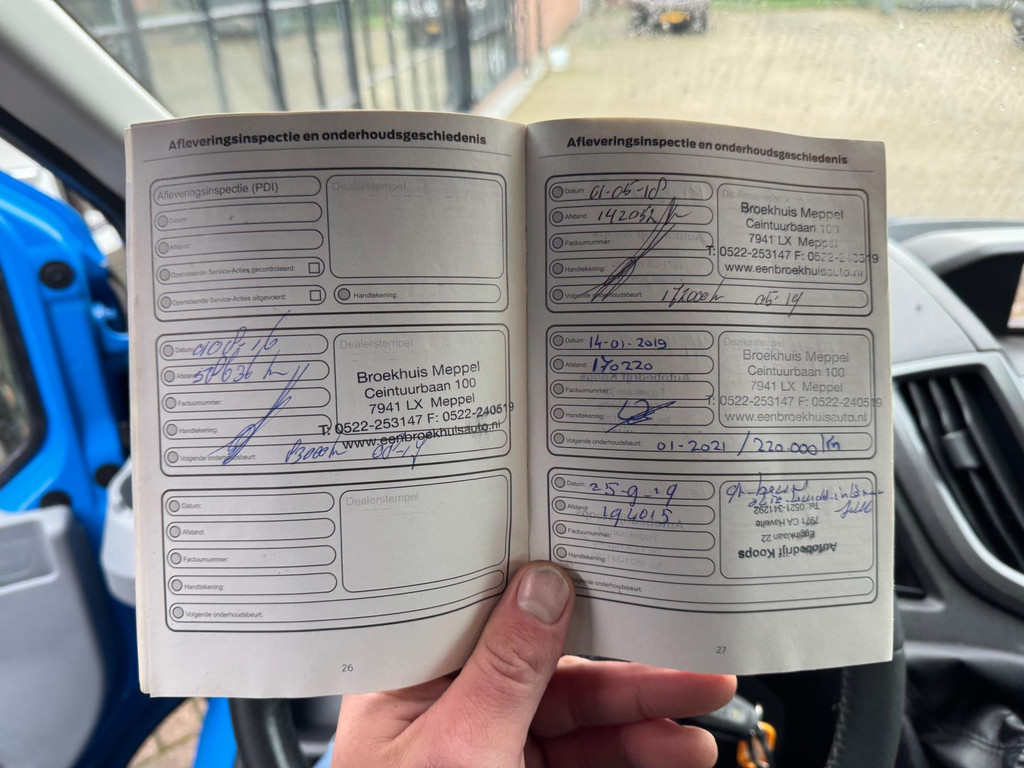 Afleveringsinspectie en onderhoudsgeschiedenis
Afleveringsinspectie (PDI)
Dealerstempel
Datum:
Afstand:
Openstaande Service-Acties gecontroleerd:
Openstaande Service-Acties uitgevoerd:
Handtekening:
Datum:
Dealerstempel
Afstand:
Broekhuis Meppel
Ceintuurbaan 100
7941 LX Meppel
T: 0522-253147 F: 0522-240519
www.eenbroekhuisauto.nl
Factuurnummer:
Handtekening:
Volgende onderhoudsbeurt:
Datum:
Dealerstempel
Afstand:
Factuurnummer:
Handtekening:
Volgende onderhoudsbeurt:
26
Afleveringsinspectie en onderhoudsgeschiedenis
Datum: 01-05-18
Afstand: 142052
Broekhuis Meppel
Ceintuurbaan 100
7941 LX Meppel
T: 0522-253147 F:
www.eenbroekhuisauto.nl
Factuurnummer:
Handtekening:
Volgende onderhoudsbeurt: 172000 05-19
Datum: 14-01-2019
Afstand: 170220
Broekhuis Meppel
Ceintuurbaan 100
7941 LX Meppel
T: 0522-253147 F: 0522-240519
www.eenbroekhuisauto.nl
Factuurnummer:
Handtekening:
Volgende onderhoudsbeurt: 01-2021 / 220.000 km
Datum: 25-9-19
Afstand: 194015
Factuurnummer:
Handtekening:
Volgende onderhoudsbeurt:
Autobedrijf Koops
Egginklaan 22
7971 CA Havelte
Tel: 0521-341292
27